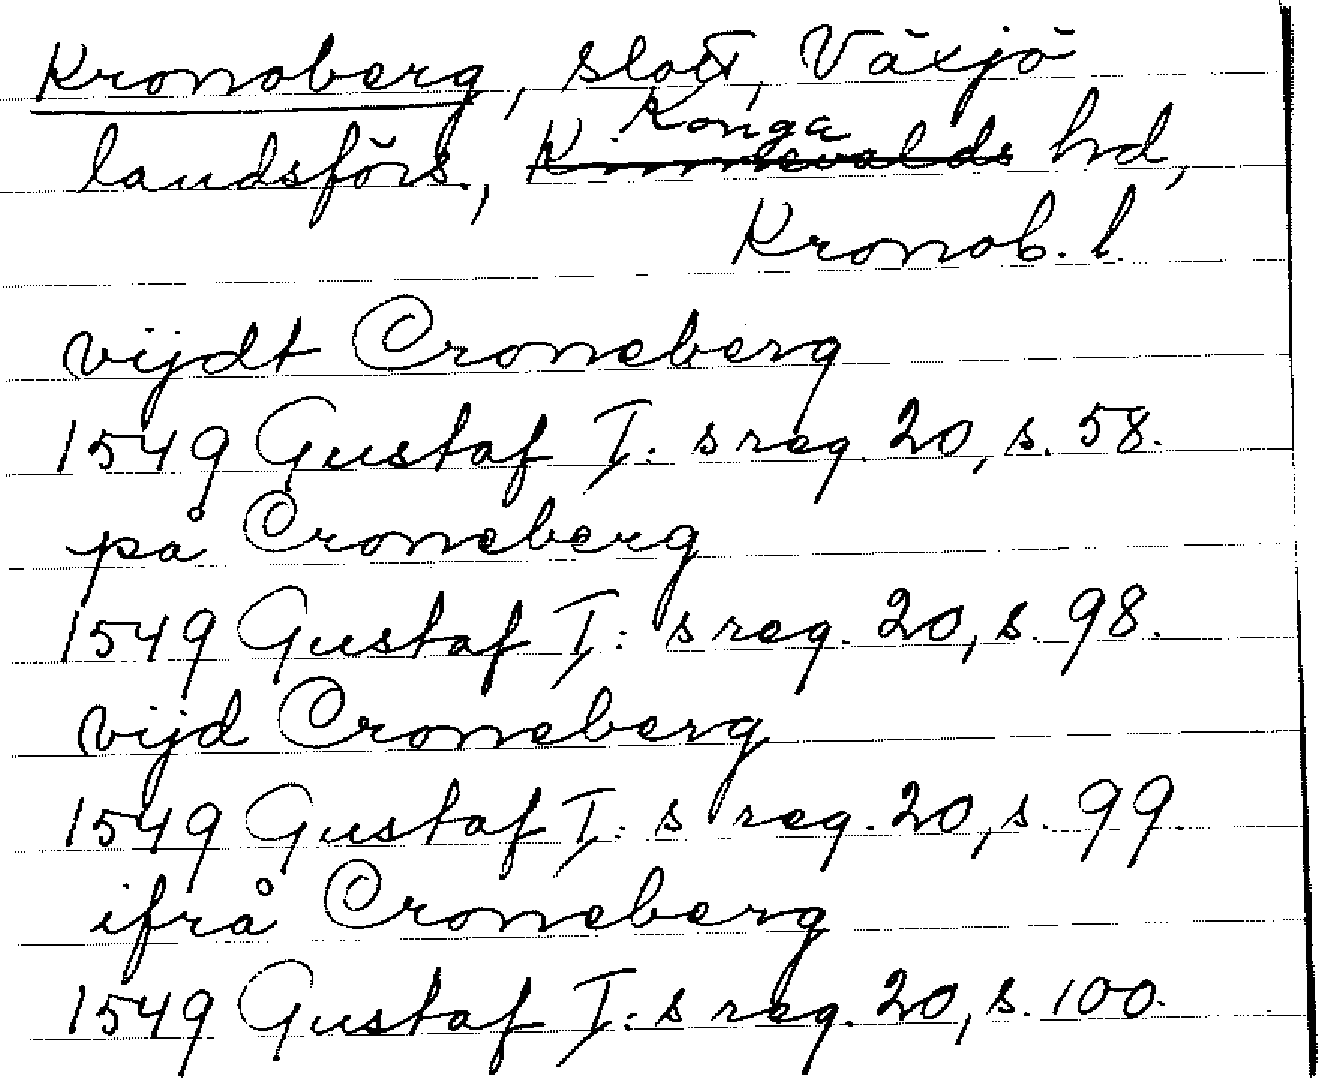 Kronoberg, slott, Växjö
Konga
landsförs., Kinnevalds hd,
Kronob. l.
vijdt Croneberg
1549 Gustaf I:s reg. 20, s. 58.
på Croneberg
1549 Gustaf I:s reg. 20, s. 98.
vijd Croneberg
1549 Gustaf I:s reg. 20, s. 99
ifrå Croneberg
1549 Gustaf I:s reg. 20, s. 100.